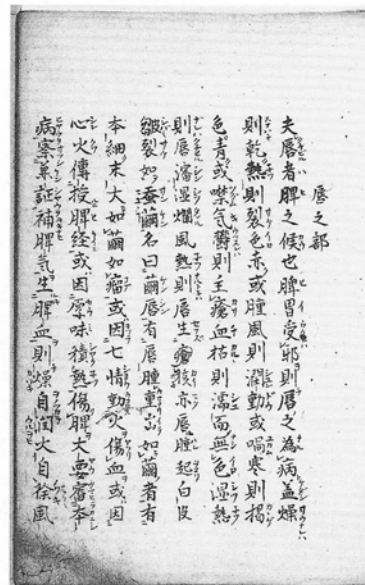 唇之部
夫唇者脾之候也脾胃受邪則唇之為病盖燥
則乾熱則裂色赤或腫風則瞤動或喎寒則揭
色青或噤气欝則主瘡血枯則瀋而無色湿熱
則唇瀋湿爛風熱則唇生瘡核亦唇腫起白皮
皺裂如蚕繭名曰繭唇有唇腫重出如繭者有
本細末大如繭如瘤或因七情動火傷血或因
心火傳授脾経或因厚味積熱傷脾大要審本
病察兼証補脾氣生脾血則燥自潤火自除風